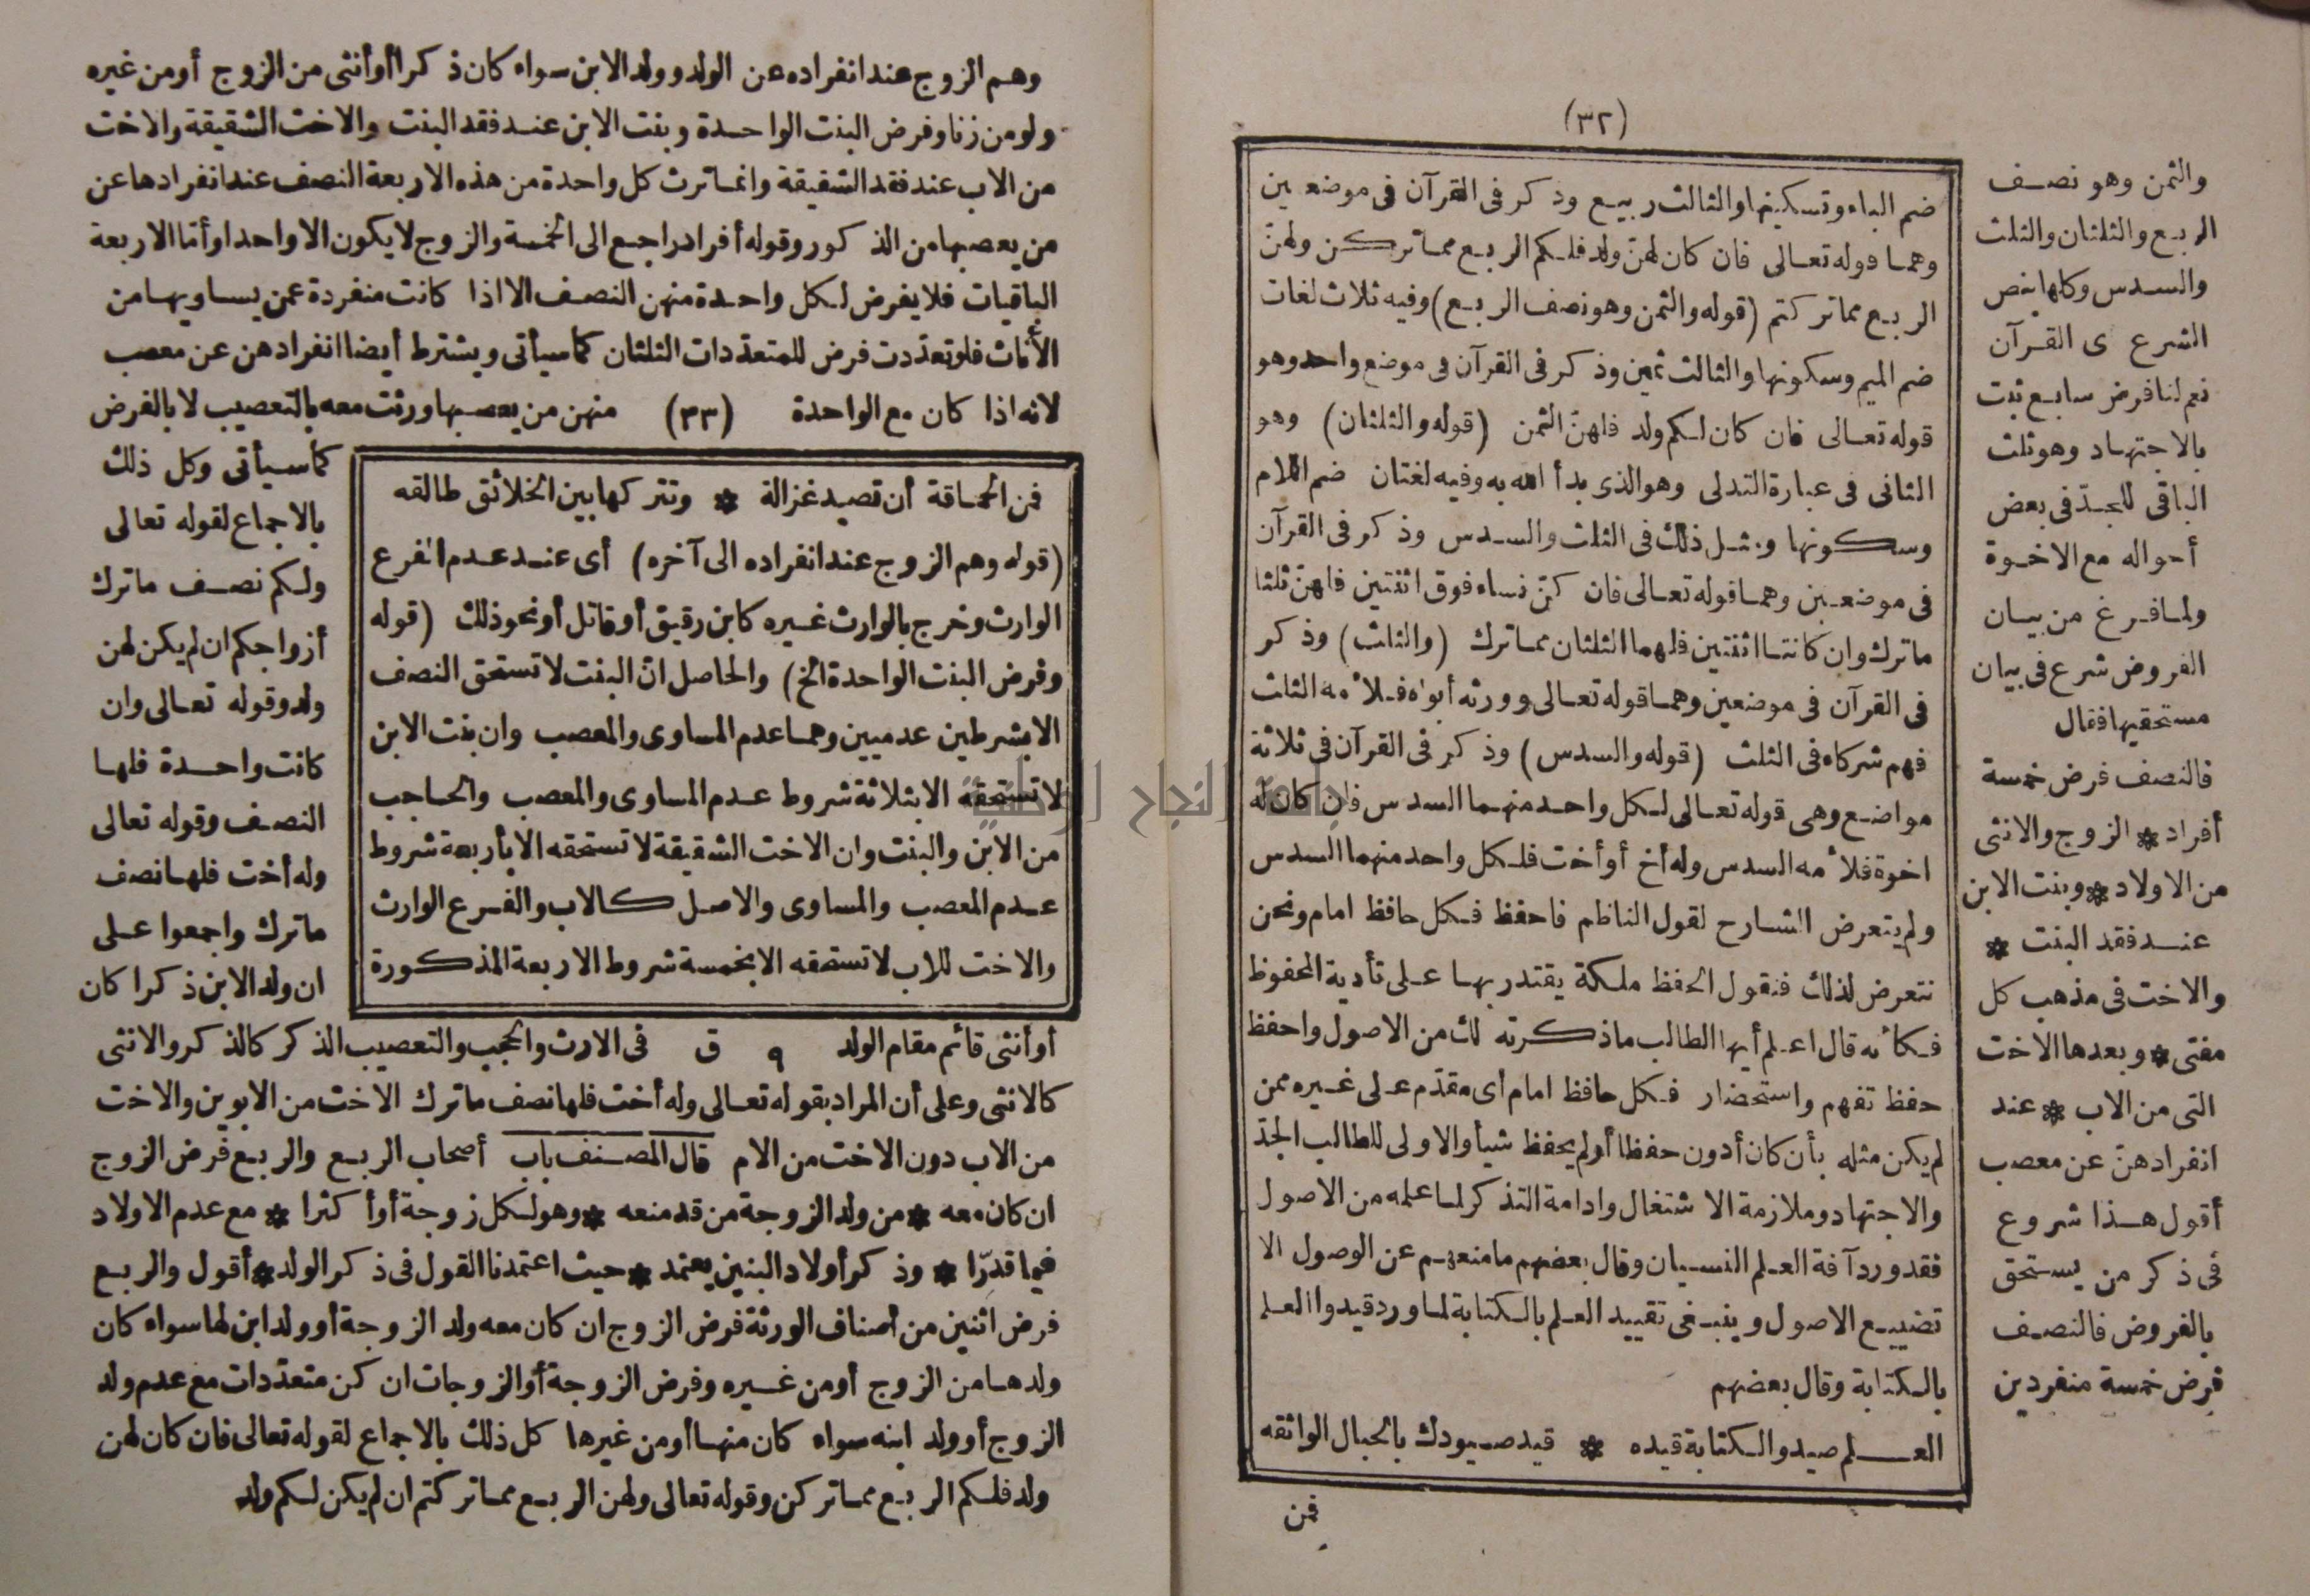 (٣٢)
والثمن وهو نصف
الربع والثلثان والثلث
والسدس وكلها بنص
الشرع ى القرآن
نعم لنا فرض سابع ثبت
بالاجتهاد وهو ثلث
الباقى للجدّ فى بعض
أحواله مع الاخوة
ولما فرغ من بيان
الفروض شرع فى بيان
مستحقيها فقال
فالنصف فرض خمسة
أفراد * الزوج والانثى
من الاولاد * وبنت الابن
عند فقد البنت *
والاخت فى مذهب كل
مفتى * وبعدها الاخت
التى من الاب * عند
انفرادهنّ عن معصب
أقول هذا شروع
فى ذكر من يستحق
بالفروض فالنصف
فرض خمسة منفردين
ضم الباء وتسكينها والثالث ربيع وذكر فى القرآن فى موضعين
وهما قوله تعالى فان كان لهنّ ولد فلكم الربع مما تركن ولهنّ
الربع مما تركتم (قوله والثمن وهو نصف الربع) وفيه ثلاث لغات
ضم الميم وسكونها والثالث ثمين وذكر فى القرآن فى موضع واحد وهو
قوله تعالى فان كان لكم ولد فلهنّ الثمن (قوله والثلثان) وهو
الثانى فى عبارة التدلى وهو الذى بدأ الله به وفيه لغتان ضم اللام
وسكونها ومثل ذلك فى الثلث والسدس وذكر فى القرآن
فى موضعين وهما قوله تعالى فان كنّ نساء فوق اثنتين فلهنّ ثلثا
ما ترك وان كانتا اثنتين فلهما الثلثان مما ترك (والثلث) وذكر
فى القرآن فى موضعين وهما قوله تعالى وورثه أبواه فلأمه الثلث
فهم شركاء فى الثلث (قوله والسدس) وذكر فى القرآن فى ثلاثة
مواضع وهى قوله تعالى لكل واحد منهما السدس فان كان له
اخوة فلأمه السدس وله أخ أو أخت فلكل واحد منهما السدس
ولم يتعرض الشارح لقول الناظم فاحفظ فكل حافظ امام ونحن
نتعرض لذلك فنقول الحفظ ملكة يقتدر بها على تأدية المحفوظ
فكأنه قال اعلم أيها الطالب ما ذكرته لك من الاصول واحفظ
حفظ تفهم واستحضار فكل حافظ امام أى مقدّم على غيره ممن
لم يكن مثله بأن كان أدون حفظا أولم يحفظ شيأ والاولى للطالب الجدّ
والاجتهاد وملازمة الاشتغال وادامة التذكر لما علمه من الاصول
فقد ورد آفة العلم النسيان وقال بعضهم ما منعهم عن الوصول الا
تضييع الاصول وينبغى تقييد العلم بالكتابة لما ورد قيدوا العلم
بالكتابة وقال بعضهم
العلم صيد والكتابة قيده * قيد صيودك بالحبال الواثقه
فمن
وهم الزوج عند انفراده عن الولد وولد الابن سواء كان ذكرا أو أنثى من الزوج أو من غيره
ولو من زنا وفرض البنت الواحدة وبنت الابن عند فقد البنت والاخت الشقيقة والاخت
من الاب عند فقد الشقيقة وانما ترث كل واحدة من هذه الاربعة النصف عند انفرادها عن
من يعصبها من الذكور وقوله أفراد راجع الى الخمسة والزوج لا يكون الا واحدا وأمّا الاربعة
الباقيات فلا يفرض لكل واحدة منهن النصف الا اذا كانت منفردة عمن يساويها من
الأناث فلو تعدّدت فرض للمتعدّدات الثلثان كما سيأتى ويشترط أيضا انفرادهن عن معصب
لانه اذا كان مع الواحدة (٣٣) منهن من يعصبها ورثت معه بالتعصيب لا بالفرض
كما سيأتى وكل ذلك
بالاجماع لقوله تعالى
ولكم نصف ما ترك
أزواجكم ان لم يكن لهن
ولد وقوله تعالى وان
كانت واحدة فلها
النصف وقوله تعالى
وله أخت فلها نصف
ما ترك واجمعوا على
ان ولد الابن ذكرا كان
فمن الحماقة أن تصيد غزالة * وتتركها بين الخلائق طالقه
(قوله وهم الزوج عند انفراده الى آخره) أى عند عدم الفرع
الوارث وخرج بالوارث غيره كابن رقيق أو قاتل أو نحو ذلك (قوله
وفرض البنت الواحدة الخ) والحاصل انّ البنت لا تستحق النصف
الا بشرطين عدميين وهما عدم المساوى والمعصب وان بنت الابن
لا تستحقه الا بثلاثة شروط عدم المساوى والمعصب والحاجب
من الابن والبنت وان الاخت الشقيقة لا تستحقه الا بأربعة شروط
عدم المعصب والمساوى والاصل كالاب والفرع الوارث
والاخت للاب لا تستحقه الا بخمسة شروط الاربعة المذكورة
أو أنثى قائم مقام الولد ٩ ق فى الارث والحجب والتعصيب الذكر كالذكر والانثى
كالانثى وعلى أن المراد بقوله تعالى وله أخت فلها نصف ما ترك الاخت من الابوين والاخت
من الاب دون الاخت من الام قال المصنف باب أصحاب الربع والربع فرض الزوج
ان كان معه * من ولد الزوجة من قد منعه * وهو لكل زوجة أو أكثرا * مع عدم الاولاد
فيما قدّرا * وذكر أولاد البنين يعتمد * حيث اعتمدنا القول فى ذكر الولد * أقول والربع
فرض اثنين من أصناف الورثة فرض الزوج ان كان معه ولد الزوجة أو ولد ابن لها سواء كان
ولدها من الزوج أو من غيره وفرض الزوجة أو الزوجات ان كن متعدّدات مع عدم ولد
الزوج أو ولد ابنه سواء كان منها أو من غيرها كل ذلك بالاجماع لقوله تعالى فان كان لهن
ولد فلكم الربع مما تركن وقوله تعالى ولهن الربع مما تركتم ان لم يكن لكم ولد
جامعة النجاح الوطنية